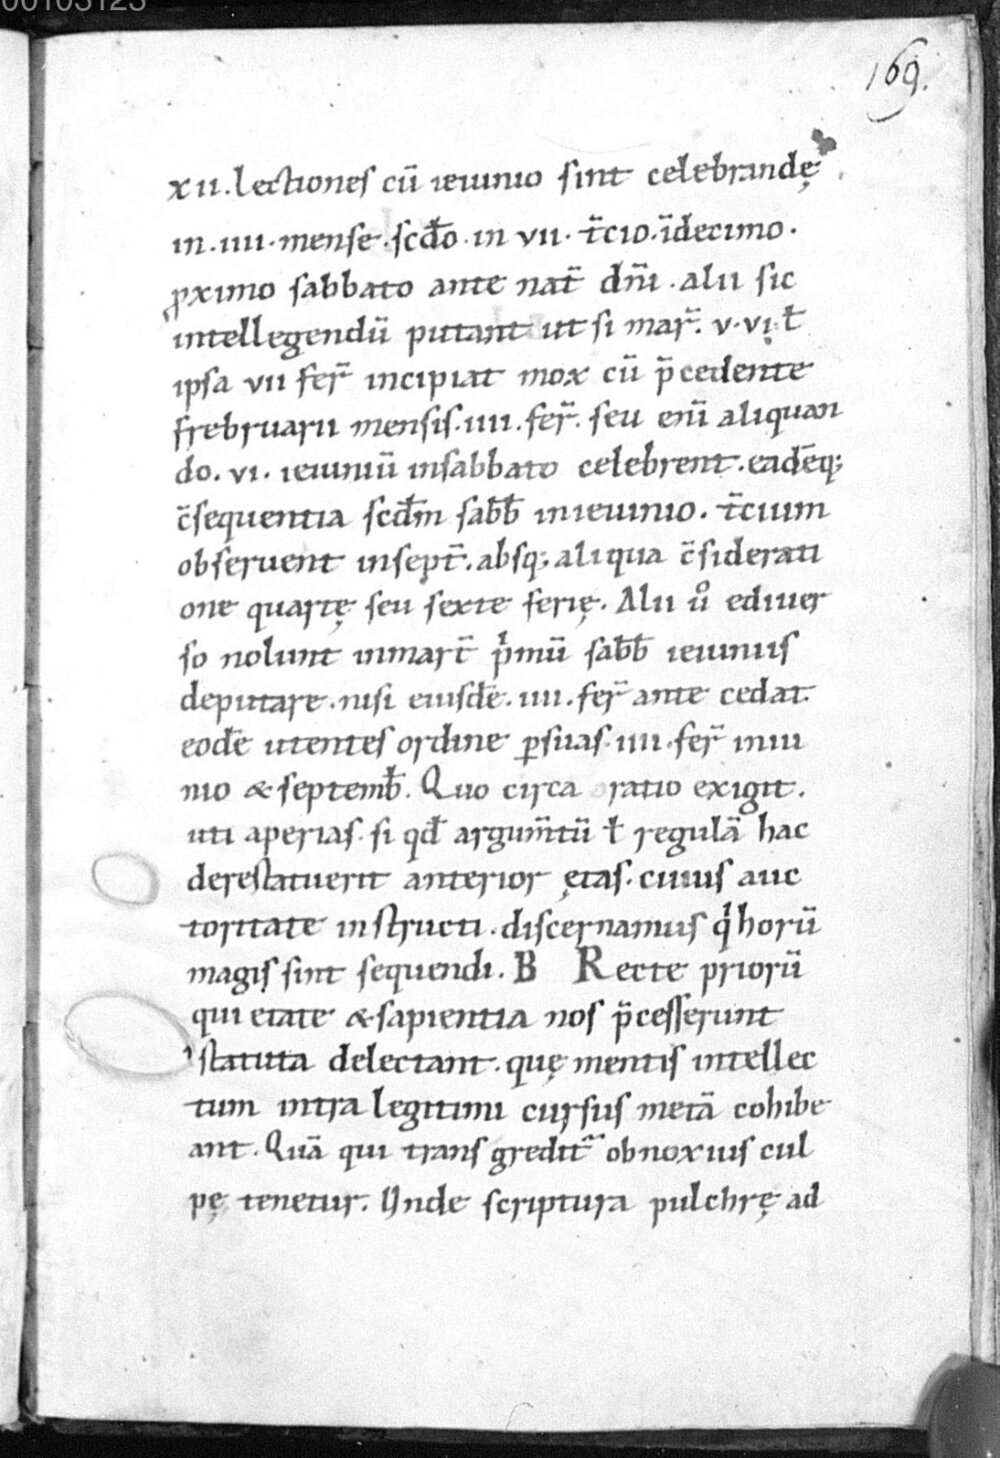 00103123
169.
xii. lectiones cū ieiunio sint celebrandę
in .iiii. mense. scd̄o in vii. t̄cio. ī decimo.
p̱ximo sabbato ante nat̄ dn̄i. alii sic
intellegendū putant ut si mar̄. v. vi. ł
ipsa vii fer̄ incipiat mox cū p̄cedente
frebruarii mensis. iiii. fer̄. seu eni̅ aliquan
do. vi. ieiuniū in sabbato celebrent. eadēq;
c̄sequentia scd̄m sabb̄ in ieiunio. t̄cium
observent in sept̄. absq; aliqua c̄siderati
one quartę seu sexte ferię. Alii ů ediver
so nolunt in mart̄ pimū sabb̄ ieiuniis
deputare. nisi eiusdē. iiii. fer̄ ante cedat.
eodē utentes ordine ꝑ suas. iiii. fer̄ in iu
nio & septemb̄. Quo circa ratio exigit.
uti aperias. si qd̄ argum̄tū ł regulā hac
de re statuerit anterior ętas. cuius auc
toritate instructi. discernamus qi horū
magis sint sequendi. B Recte priorū
qui etate & sapientia nos p̄cesserunt
statuta delectant. quę mentis intellec
tum intra legitimi cursus metā cohibe
ant. Quā qui transgredit᷑ obnoxius cul
pę tenetur. Unde scriptura pulchrę ad